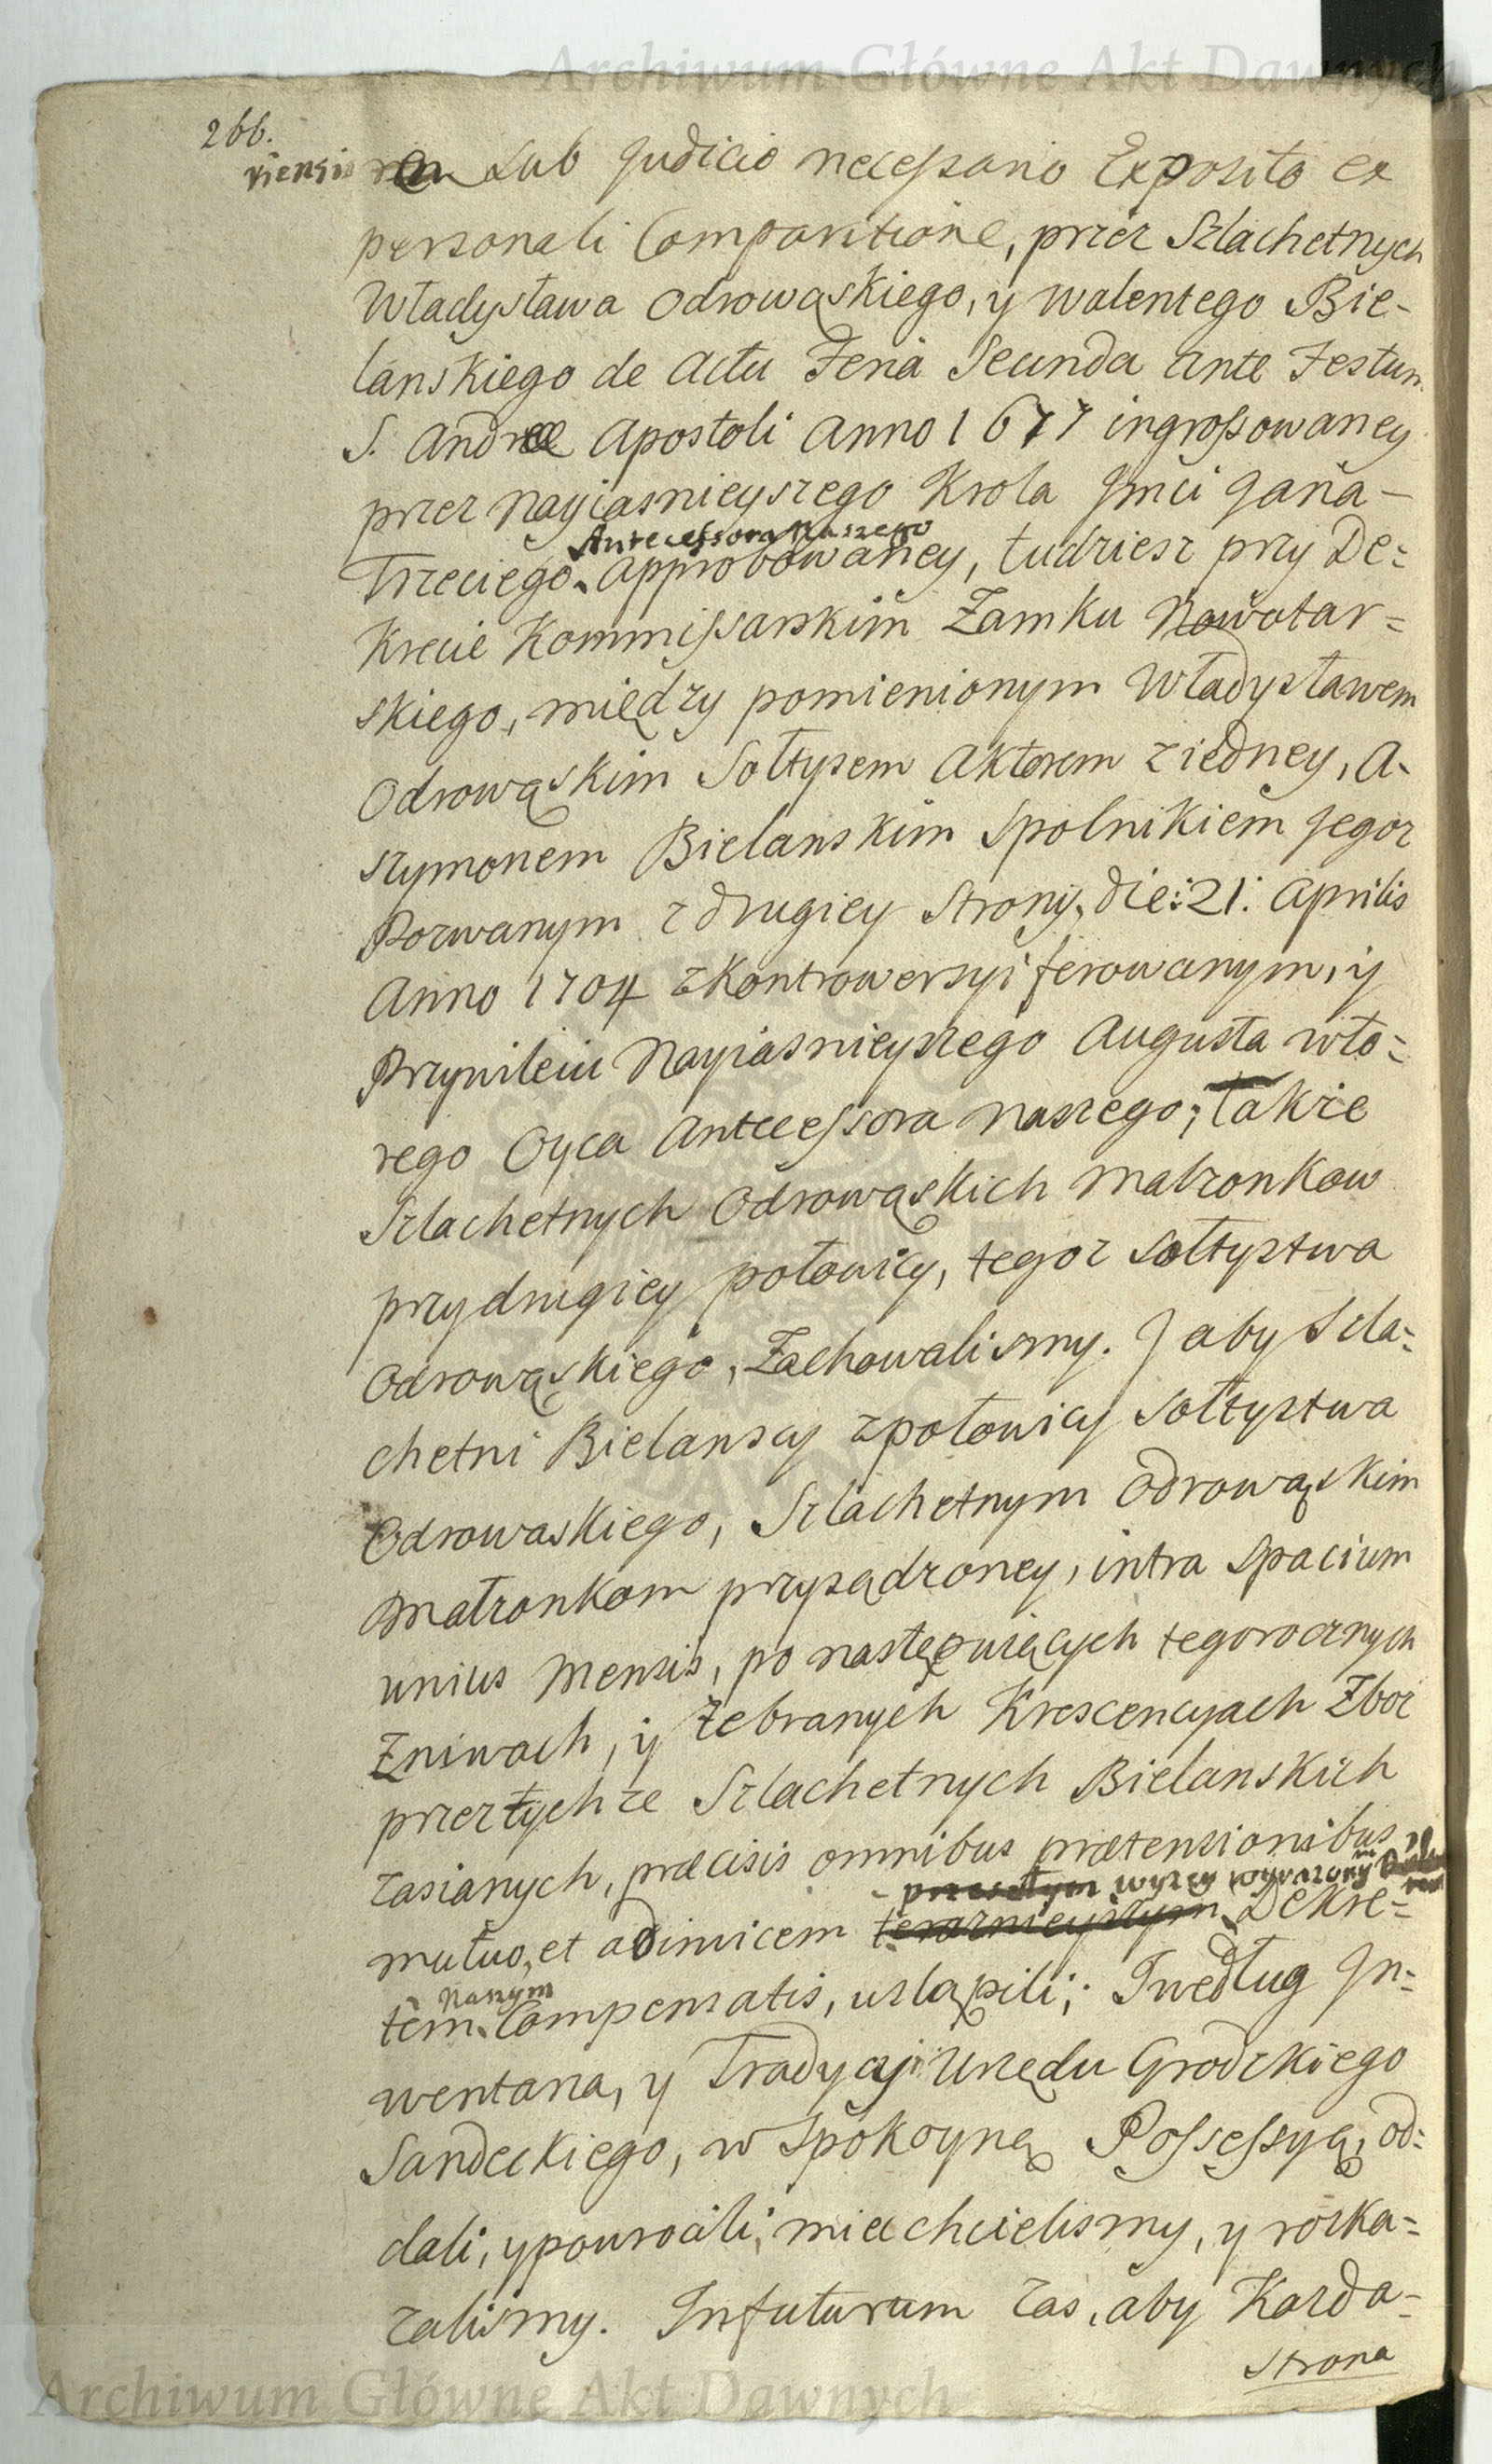 Archiwum Główne Akt Dawnych
266.
riensi Sub Judicio necessario Exposito ex
personali Comparitione, przez Szlachetnych
Władysława Odrowąskiego, y Walentego Bie-
lanskiego de Actu Feria Secunda Ante Festum
S. Andreæ Apostoli Anno 1677 ingrossowaney
przez Nayiasnieyszego Krola Jmci Jana-
Antecessora Naszego
Trzeciego approbowaney, tudziesz przy De=
krecie Kommissarskim Zamku Nowotar=
skiego, między pomienionym Władysławem
Odrowąskim Sołtysem Aktorem z iedney, A.
szymonem Bielanskim Spolnikiem Jegoz
Pozwanym z drugiey Strony, die: 21: Aprilis
Anno 1704 z Kontrowersyi ferowanym, y
Przywileiu Nayiasnieyszego Augusta wto=
rego Oyca Antecessora Naszego; także
Szlachetnych Odrowąskich Małzonkow
przy drugiey połowicy, tegoz Sołtystwa
Odrowąskiego, Zachowalismy. J aby Szla=
chetni Bielanscy z połowicy Sołtystwa
Odrowaskiego, Szlachetnym Odrowąskim
Małzonkom przysądzoney, intra spacium
unius Mensis, po następuiących tegorocznych
Zniwach, y Zebranych Krescencyach Zboz
przez tychze Szlachetnych Bielanskich
zasianych, præcisis omnibus prætensionibus
- przeszłym wyzey wyrazonym
mutuo, et adinvicem teraznieyszym Dekre=
Naszym
tem Compensatis, ustąpili; Jwedług Jn=
wentarza, y Tradycyi Urzędu Grodzkiego
Sandeckiego, w Spokoyną Possessyą, od=
dali, y powrocili, miec chcielismy, y roska=
zalismy. In futurum zas, aby Kazda-
Strona
Archiwum Główne Akt Dawnych